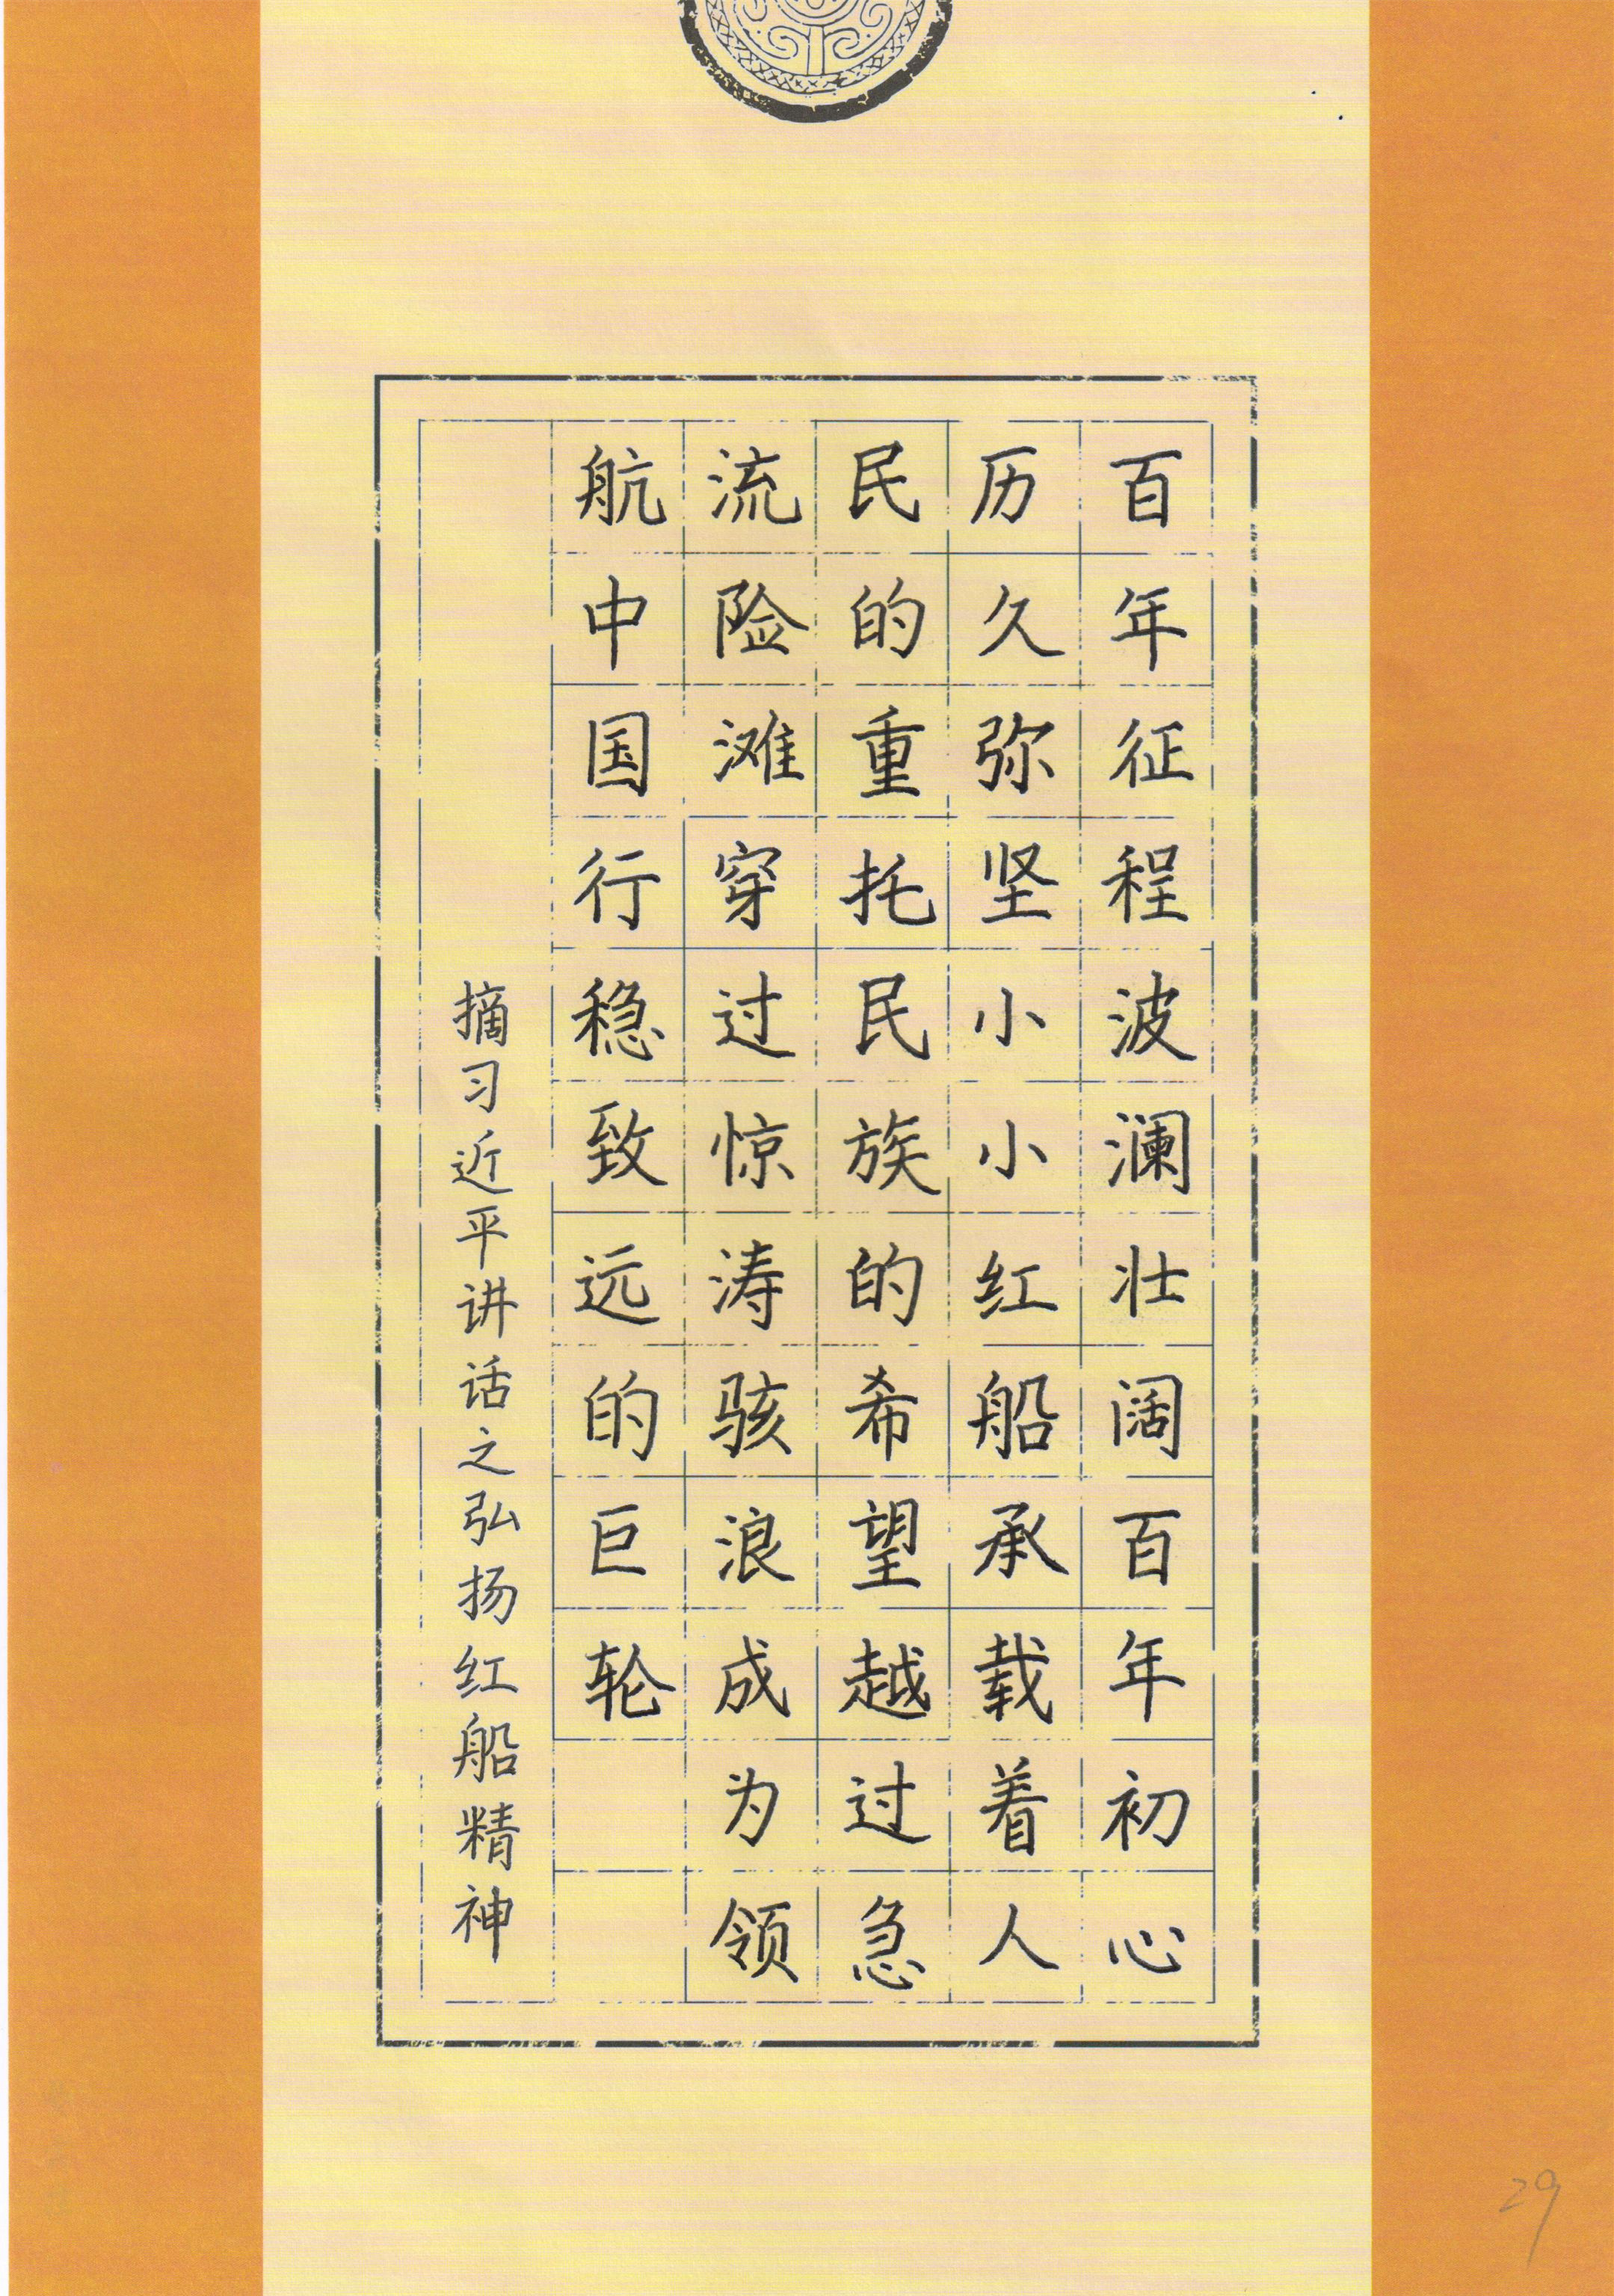 百年征程波澜壮阔百年初心
历久弥坚小小红船承载着人
民的重托民族的希望越过急
流险滩穿过惊涛骇浪成为领
航中国行稳致远的巨轮
摘习近平讲话之弘扬红船精神
29